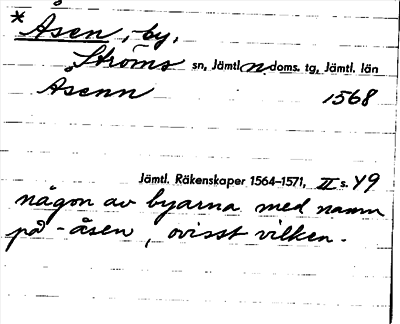 * Åsen, -by,
Ströms sn, Jämtl. n. doms. tg, Jämtl. län
Åsenn 1568
Jämtl. Räkenskaper 1564–1571, II s. 49
någon av byarna med namn
på -åsen, ovisst vilken.